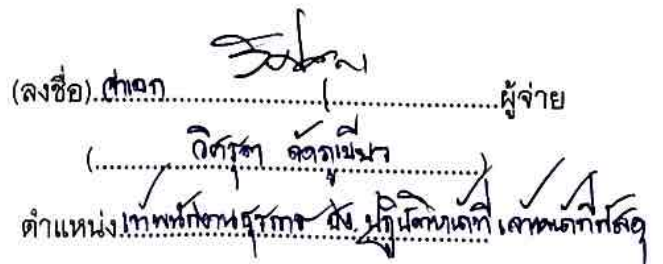 (ลงชื่อ) จ่าเอก ผู้จ่าย
(วิศรุต)
ตำแหน่ง เจ้าพนักงานธุรการ ปฏิบัติหน้าที่ เจ้าหน้าที่พัสดุ